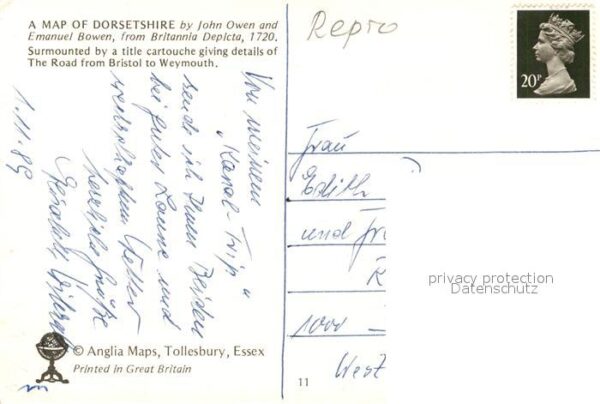 A MAP OF DORSETSHIRE by John Owen and
Emanuel Bowen, from Britannia Depicta, 1720.
Surmounted by a title cartouche giving details of
The Road from Bristol to Weymouth.
Repro
20P
1.11.89
Von meinem
"Kanal-Trip"
sende ich Ihnen Beiden
bei guter Laune und
Wetter
herzliche Grüße
Frau
Edith
und Fr
R
1000 —
West
privacy protection
Datenschutz
© Anglia Maps, Tollesbury, Essex
Printed in Great Britain
11